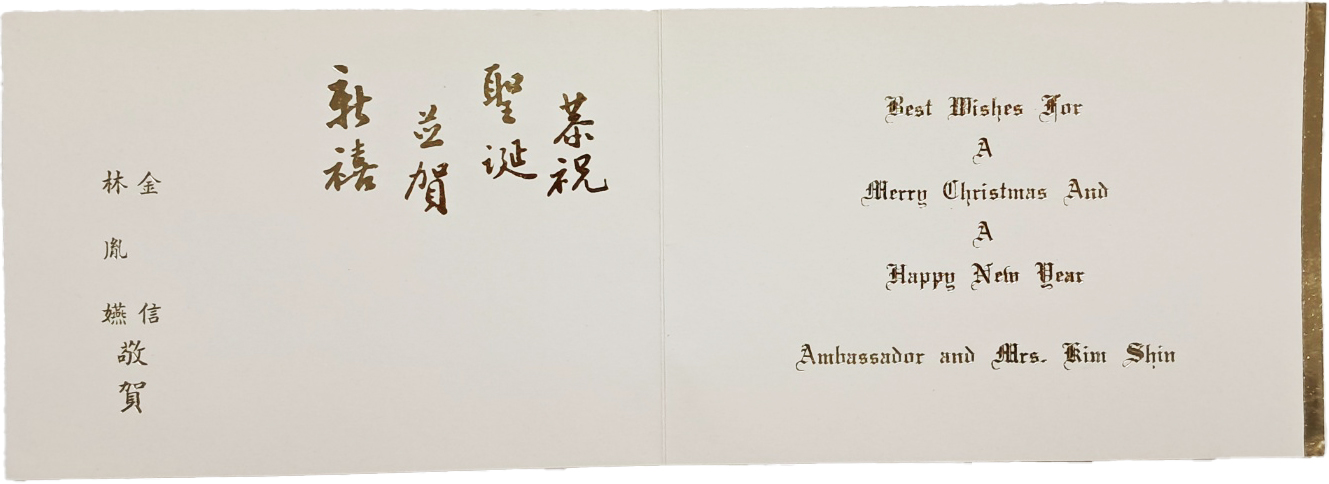 恭祝
聖誕
並賀
新禧
金信
林胤嬿
敬賀
Best Wishes For
A
Merry Christmas And
A
Happy New Year
Ambassador and Mrs. Kim Shin